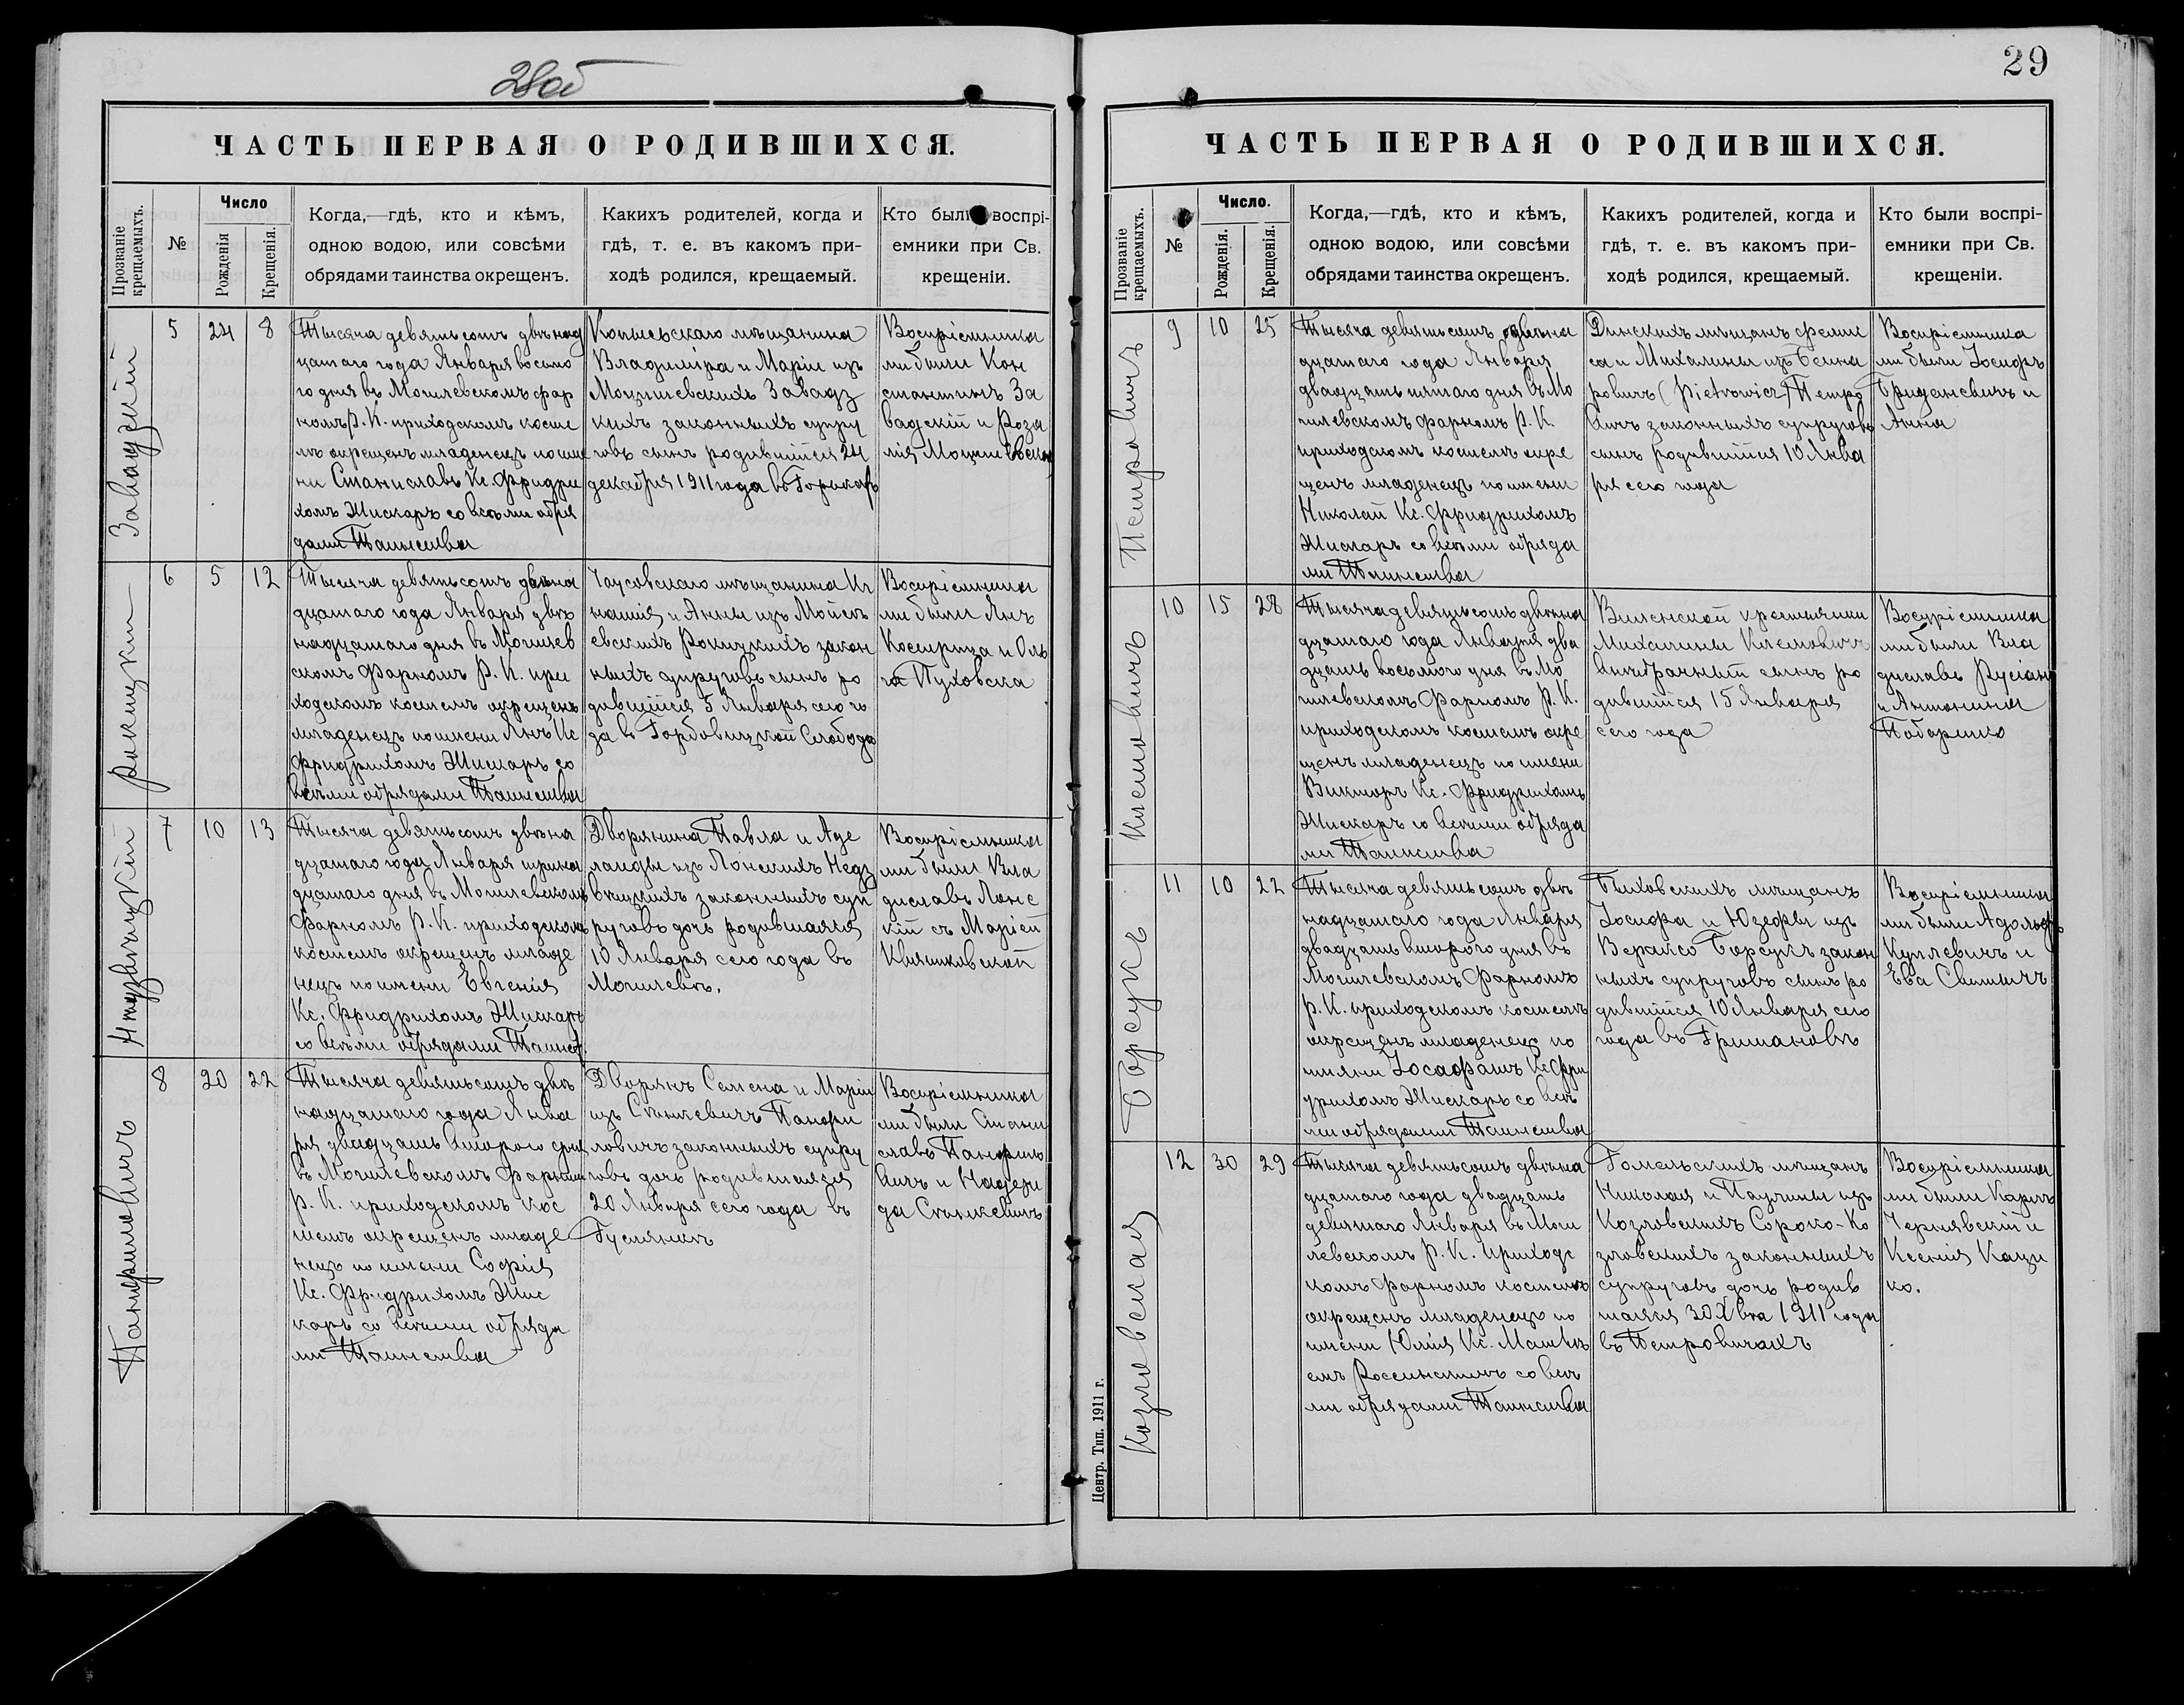 28об
ЧАСТЬ ПЕРВАЯ О РОДИВШИХСЯ.
Прозваніе крещаемыхъ.
№
Число
Рожденія
Крещенія.
Когда,—гдѣ, кто и кѣмъ,
одною водою, или совсѣми
обрядами таинства окрещенъ.
Какихъ родителей, когда и
гдѣ, т. е. въ какомъ при-
ходѣ родился, крещаемый.
Кто были воспрі-
емники при Св.
крещеніи.
Завадзкій
5
24
8
Тысяча девятьсотъ двѣнад
цатаго года Января восьмо
го дня въ Могилевскомъ фар
номъ Р. К. приходскомъ косте
лѣ окрещенъ младенецъ по име
ни Станиславъ Кс. Фридри
хомъ Жискаръ со всѣми обря
дами Таинства
Копысьскаго мѣщанина
Владиміра и Маріи изъ
Завадз
кихъ законныхъ супру
говъ сынъ родившійся 24
декабря 1911 года въ Горкахъ
Воспріемника
ми были Кон
стантинъ За
вадскій и Роза
лія
Рокицкій
6
5
12
Тысяча девятьсотъ двѣна
дцатаго года Января двѣ
надцатаго дня въ Могилев
скомъ Фарномъ Р. К. при
ходскомъ костелѣ окрещенъ
младенецъ по имени Янъ Кс
Фридрихомъ Жискаръ со
всѣми обрядами Таинства
Чаусовскаго мѣщанина Иг
натія и Анны изъ Мойсѣ
евскихъ Рокицкихъ закон
ныхъ супруговъ сынъ ро
дившійся 5 Января сего го
да въ Горбовицкой Слободѣ
Воспріемника
ми были Янъ
Кострица и Оль
га Пуховска
Недзвѣцкій
7
10
13
Тысяча девятьсотъ двѣна
дцатаго года Января трина
дцатаго дня въ Могилевскомъ
Фарномъ Р. К. приходскомъ
костелѣ окрещенъ младе
нецъ по имени Евгенія
Кс. Фридрихомъ Жискаръ
со всѣми обрядами Таинст.
Дворянина Павла и Аде
лаиды изъ Лонскихъ Недз
вѣцкихъ законныхъ суп
руговъ дочь родившаяся
10 Января сего года въ
Могилевѣ.
Воспріемника
ми были Вла
диславъ Лонс
кій съ Маріей
Квятковской
Панфиловичъ
8
20
22
Тысяча девятьсотъ двѣ
надцатаго года Янва
ря двадцать второго дня
въ Могилевскомъ Фарномъ
Р. К. приходскомъ кос
телѣ окрещенъ младе
нецъ по имени Софія
Кс. Фридрихомъ Жис
каръ со всѣми обряда
ми Таинства
Дворянъ Семена и Маріи
изъ Станкевичъ Панфи
ловичъ законныхъ супру
говъ дочь родившаяся
20 Января сего года въ
Воспріемника
ми были Стани
славъ Панфило
вичъ и Надеж
да Станкевичъ
29
ЧАСТЬ ПЕРВАЯ О РОДИВШИХСЯ.
Прозваніе крещаемыхъ.
№
Число.
Рожденія.
Крещенія.
Когда,—гдѣ, кто и кѣмъ,
одною водою, или совсѣми
обрядами таинства окрещенъ.
Какихъ родителей, когда и
гдѣ, т. е. въ какомъ при-
ходѣ родился, крещаемый.
Кто были воспрі-
емники при Св.
крещеніи.
Петровичъ
9
10
25
Тысяча девятьсотъ двѣна
дцатаго года Января
двадцать пятаго дня въ Мо
гилевскомъ Фарномъ Р. К.
приходскомъ костелѣ окре
щенъ младенецъ по имени
Николай Кс. Фридрихомъ
Жискаръ со всѣми обряда
ми Таинства
Динскихъ мѣщанъ
са и Михалины изъ
ровичъ (Pietrowicz) Петро
вичъ законныхъ супруговъ
сынъ родившійся 10 Янва
ря сего года
Воспріемника
ми были Іосифъ
и
Анна
Кисмовичъ
10
15
28
Тысяча девятьсотъ двѣна
дцатаго года Января два
дцать восьмого дня въ Мо
гилевскомъ Фарномъ Р. К.
приходскомъ костелѣ окре
щенъ младенецъ по имени
Викторъ Кс. Фридрихомъ
Жискаръ со всѣми обряда
ми Таинства
Виленской крестьянки
Михалины
внѣбрачный сынъ ро
дившійся 15 Января
сего года
Воспріемника
ми были Вла
диславъ
и Антонина
Борсукъ
11
10
22
Тысяча девятьсотъ двѣ
надцатаго года Января
двадцать второго дня въ
Могилевскомъ Фарномъ
Р. К. приходскомъ костелѣ
окрещенъ младенецъ по
имени Іосафатъ Кс. Фри
дрихомъ Жискаръ со всѣ
ми обрядами Таинства
Быховскихъ мѣщанъ
Іосифа и Юзефы изъ
Борсукъ закон
ныхъ супруговъ сынъ ро
дившійся 10 Января сего
года въ Гришановѣ
Воспріемника
ми были Адольфъ
и
Ева
Козловская
12
30
29
Тысяча девятьсотъ двѣна
дцатаго года двадцать
девятаго Января въ Моги
левскомъ Р. К. приходс
комъ Фарномъ костелѣ
окрещенъ младенецъ по
имени Юлія Кс. Матвѣ
емъ со всѣ
ми обрядами Таинства
Гомельскихъ мѣщанъ
Николая и Паулины изъ
Козловскихъ Сороко-Ко
зловскихъ законныхъ
супруговъ дочь родив
шаяся 30 Xбра 1911 года
въ Петровичахъ
Воспріемника
ми были Карлъ
Чернявскій и
Ксенія Каци
ко.
Центр. Тип. 1911 г.